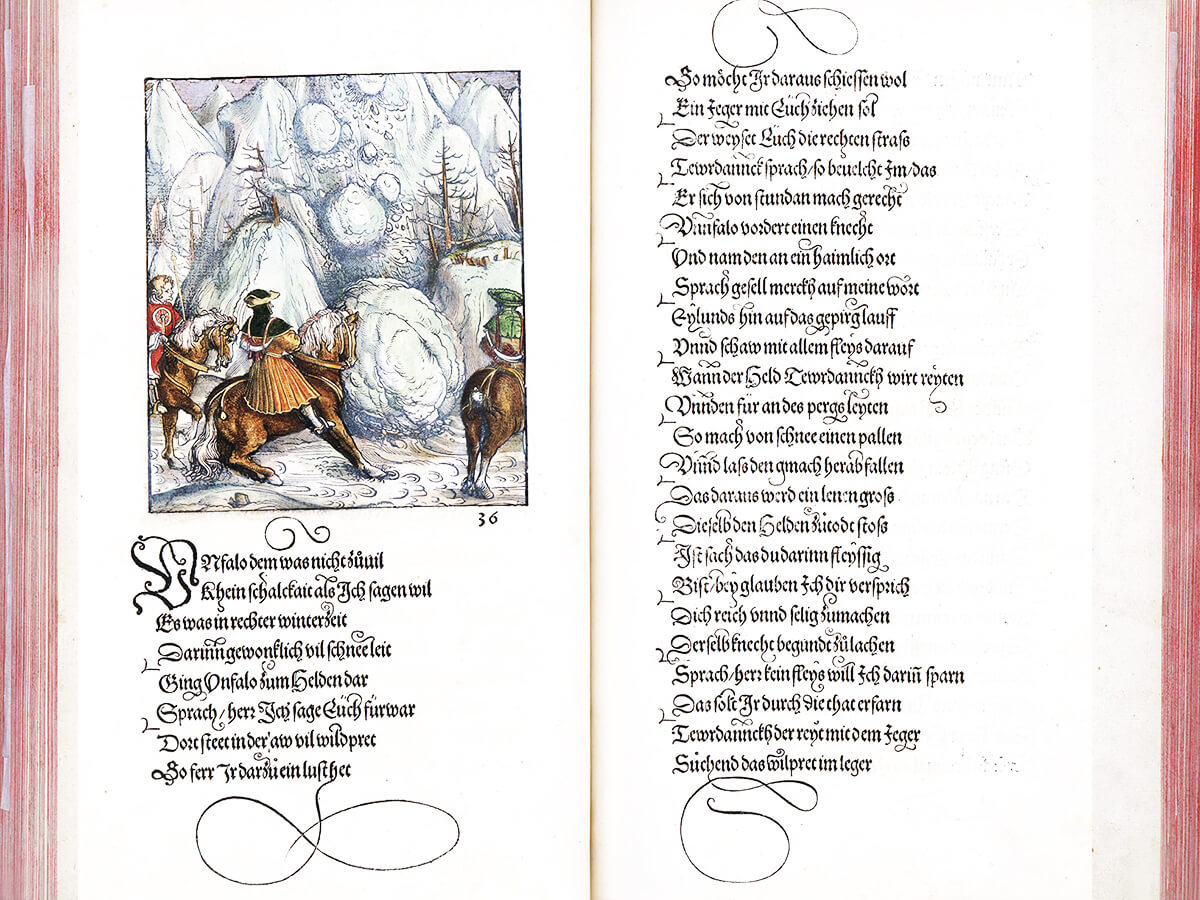 36
VNfalo dem was nicht zůuil
Khein schalckait als Ich sagen wil
Es was in rechter winterzeit
Darinn gewonklich vil schnee leit
Ging Vnfalo zum Helden dar
Sprach / herr Ich sage Eüch fürwar
Dort steet in der aw vil wildpret
So ferr Ir darzů ein lust het
So möcht Ir daraus schiessen wol
Ein Jeger mit Eüch ziehen sol
Der weyset Eüch die rechten strass
Tewrdannck sprach / so beuelcht Im / das
Er sich von stundan mach gerecht
Vnnfalo vordert einen knecht
Vnd nam den an ein haimlich ort
Sprach gesell merckh auf meine wort
Eylunds hin auf das gepirg lauff
Vnnd schaw mit allem fleys darauf
Wann der Held Tewrdannckh wirt reyten
Vnnden für an des pergs leyten
So mach von schnee einen pallen
Vnnd lass den gmach herab fallen
Das daraus werd ein lenen gross
Dieselb den Helden zůtodt stoss
Ist sach das du darinn fleyssig
Bist / bey glauben Ich dir versprich
Dich reich vnnd selig zumachen
Derselb knecht begundt zůlachen
Sprach / herr kein fleys will Ich dariñ sparn
Das solt Ir durch die that erfarn
Tewrdannckh der reyt mit dem Jeger
Sůchend das wilpret im leger